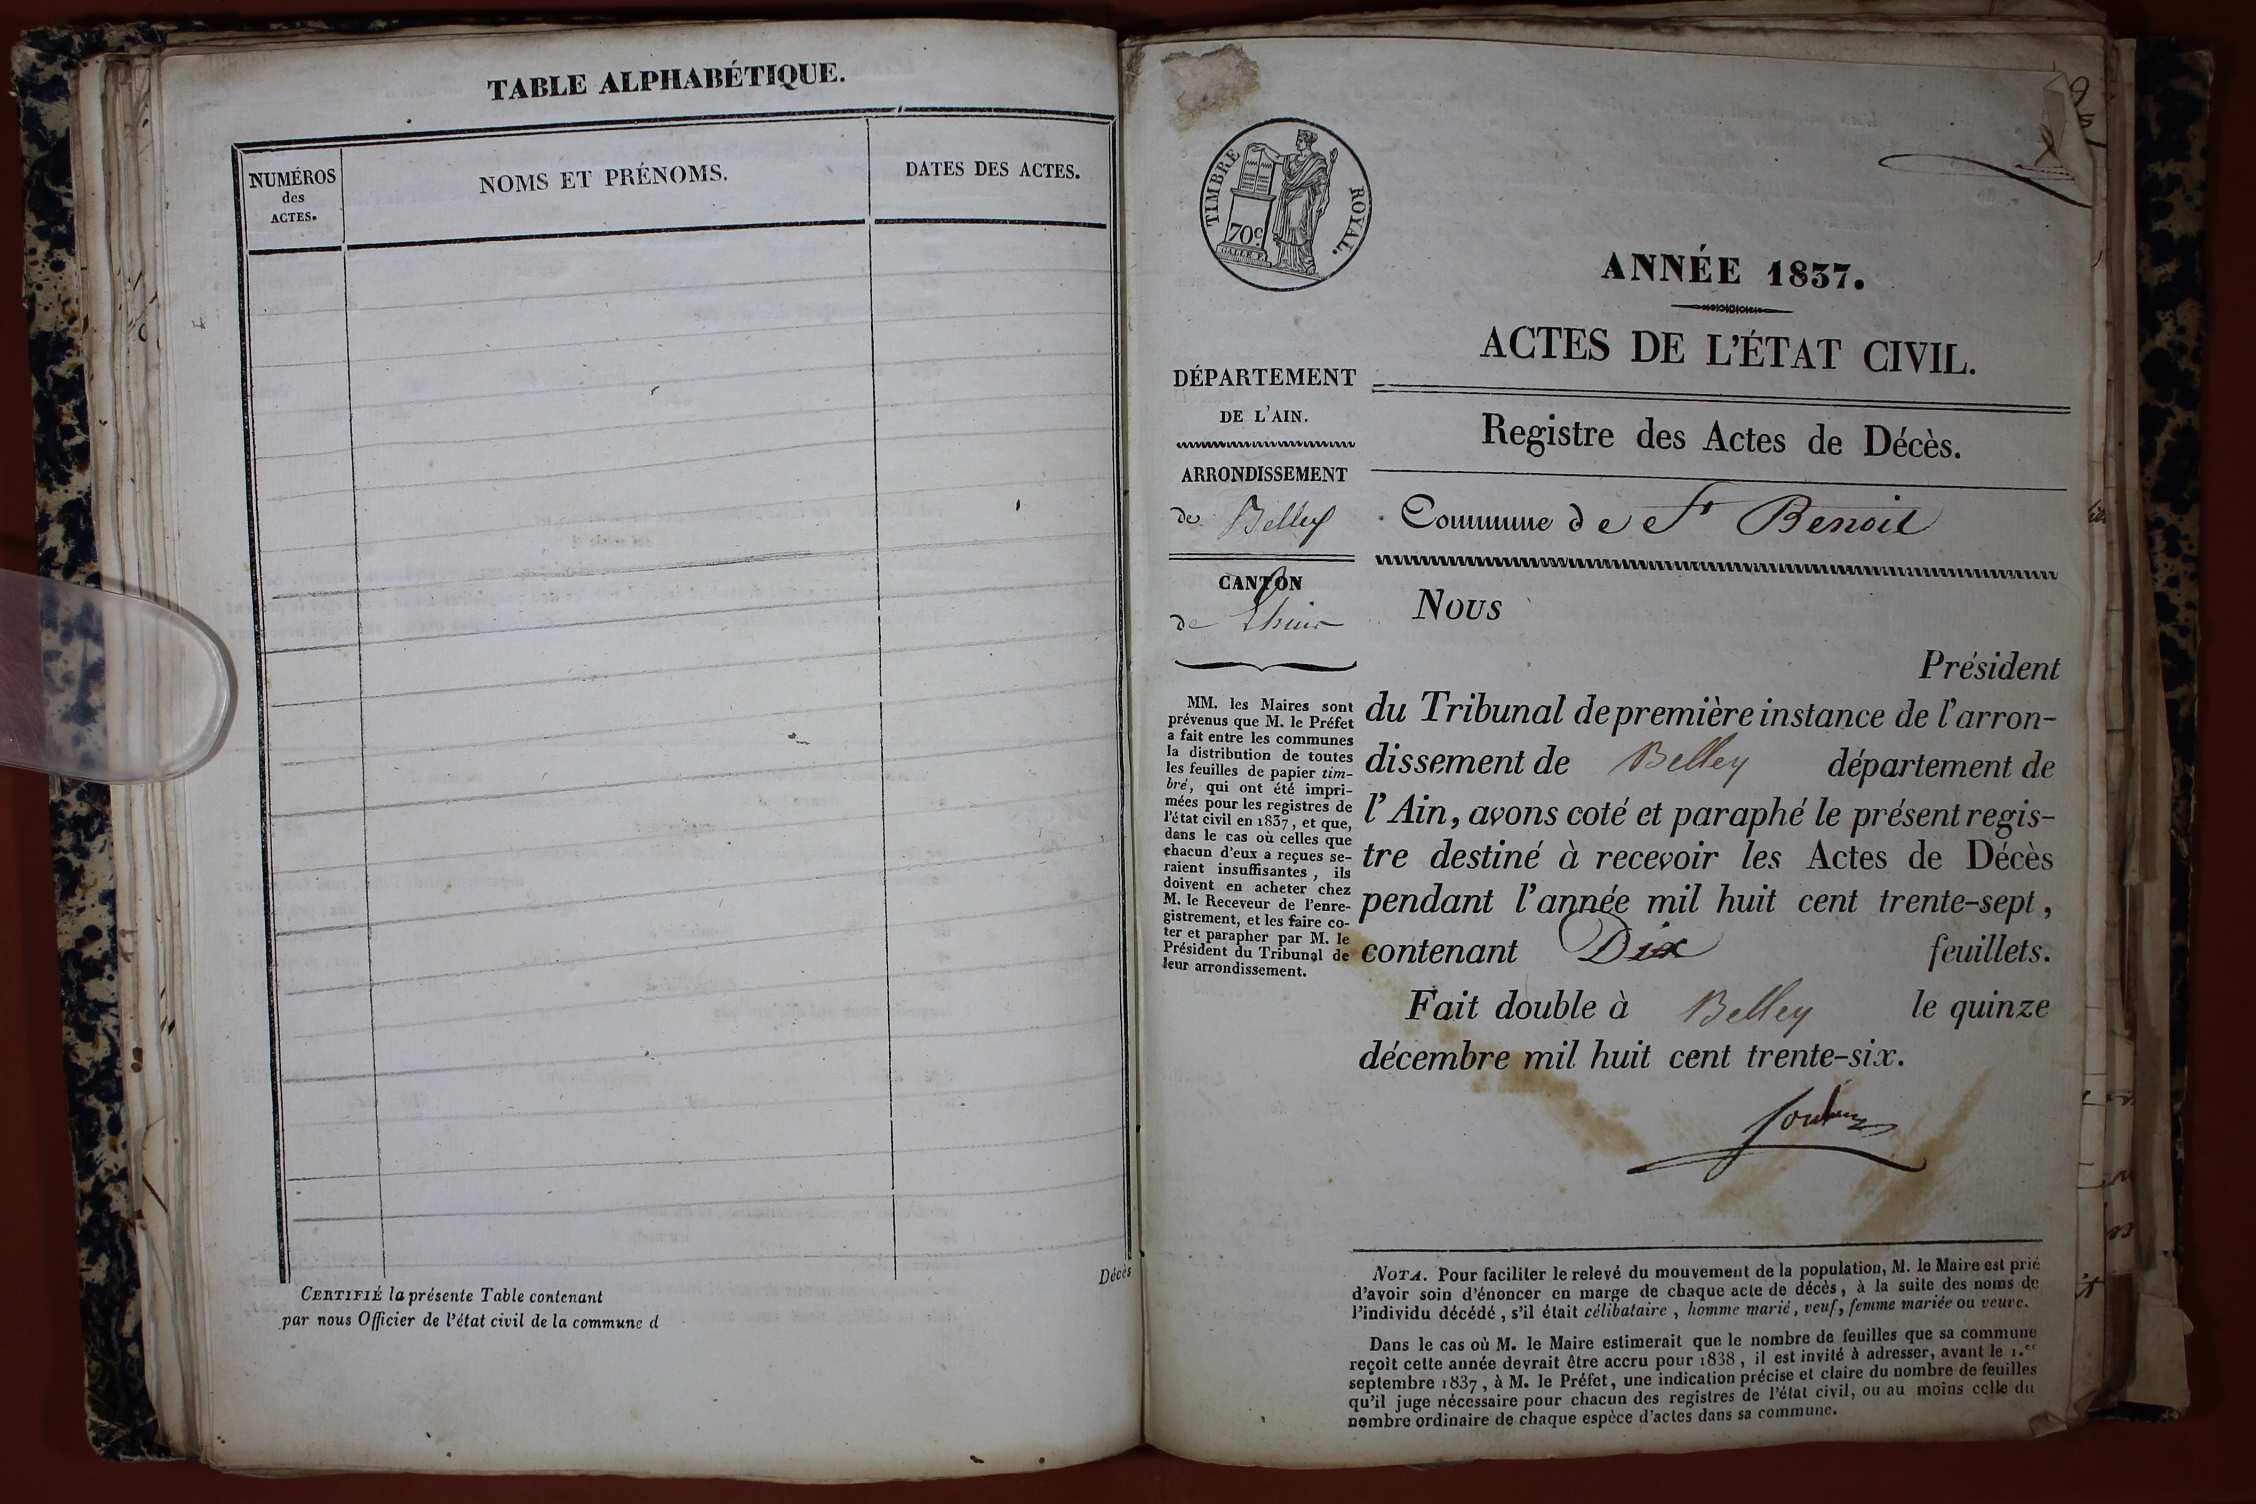 TABLE ALPHABÉTIQUE.
NUMÉROS
des
ACTES.
NOMS ET PRÉNOMS.
DATES DES ACTES.
CERTIFIÉ la présente Table contenant
par nous Officier de l'état civil de la commune d
Décès
TIMBRE ROYAL.
70c.
ANNÉE 1837.
ACTES DE L'ÉTAT CIVIL.
DÉPARTEMENT
DE L'AIN.
ARRONDISSEMENT
de Belley
CANTON
de Lhuis
Registre des Actes de Décès.
Commune de St Benoit
MM. les Maires sont
prévenus que M. le Préfet
a fait entre les communes
la distribution de toutes
les feuilles de papier tim-
bré, qui ont été impri-
mées pour les registres de
l'état civil en 1837, et que,
dans le cas où celles que
chacun d'eux a reçues se-
raient insuffisantes, ils
doivent en acheter chez
M. le Receveur de l'enre-
gistrement, et les faire co-
ter et parapher par M. le
Président du Tribunal de
leur arrondissement.
Nous
Président
du Tribunal de première instance de l'arron-
dissement de Belley département de
l'Ain, avons coté et paraphé le présent regis-
tre destiné à recevoir les Actes de Décès
pendant l'année mil huit cent trente-sept,
contenant Dix feuillets.
Fait double à Belley le quinze
décembre mil huit cent trente-six.
NOTA. Pour faciliter le relevé du mouvement de la population, M. le Maire est prié
d'avoir soin d'énoncer en marge de chaque acte de décès, à la suite des noms de
l'individu décédé, s'il était célibataire, homme marié, veuf, femme mariée ou veuve.
Dans le cas où M. le Maire estimerait que le nombre de feuilles que sa commune
reçoit cette année devrait être accru pour 1838, il est invité à adresser, avant le 1.er
septembre 1837, à M. le Préfet, une indication précise et claire du nombre de feuilles
qu'il juge nécessaire pour chacun des registres de l'état civil, ou au moins celle du
nombre ordinaire de chaque espèce d'actes dans sa commune.